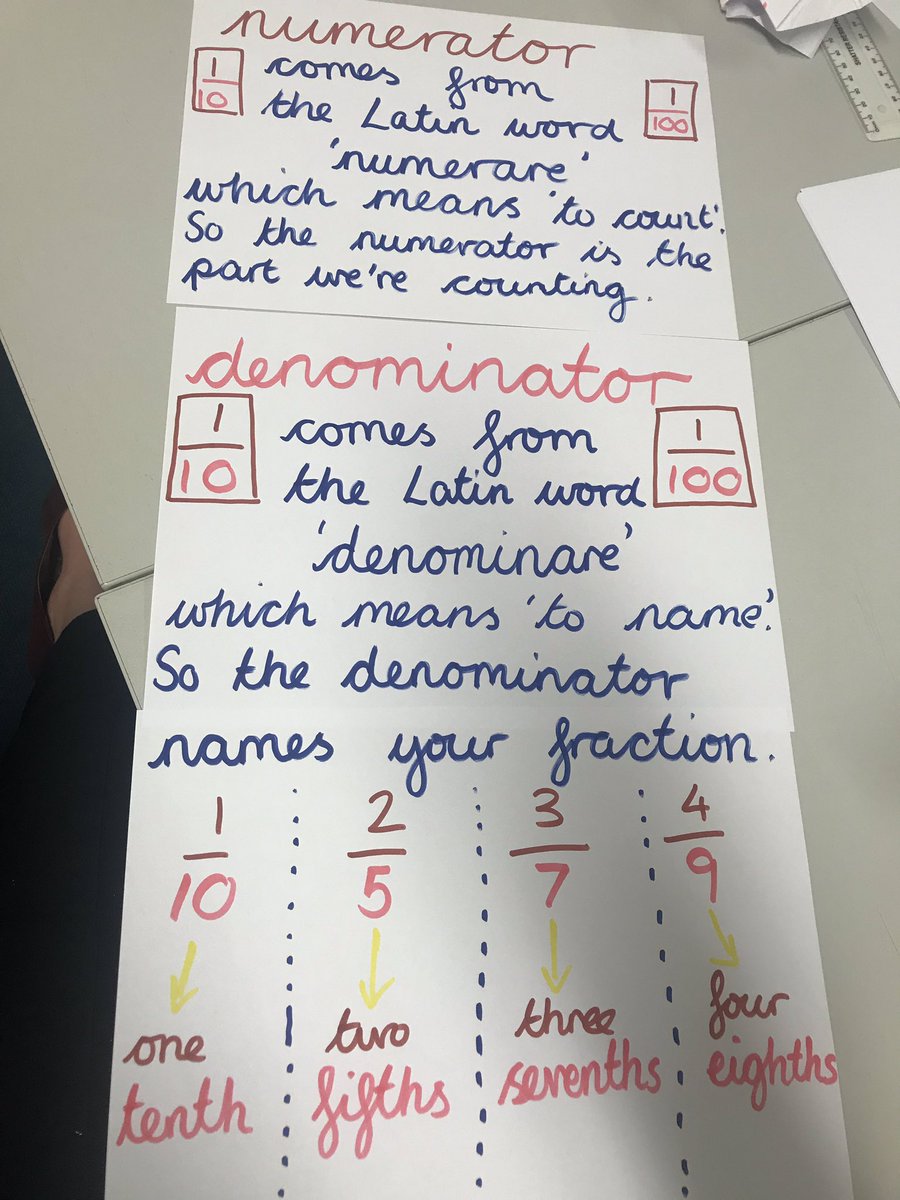 numerator
1/10 comes from 1/100
the Latin word
'numerare'
which means 'to count'.
So the numerator is the
part we're counting.
denominator
1/10 comes from 1/100
the Latin word
'denominare'
which means 'to name'.
So the denominator
names your fraction.
1/10 2/5 3/7 4/9
one two three four
tenth fifths sevenths eighths